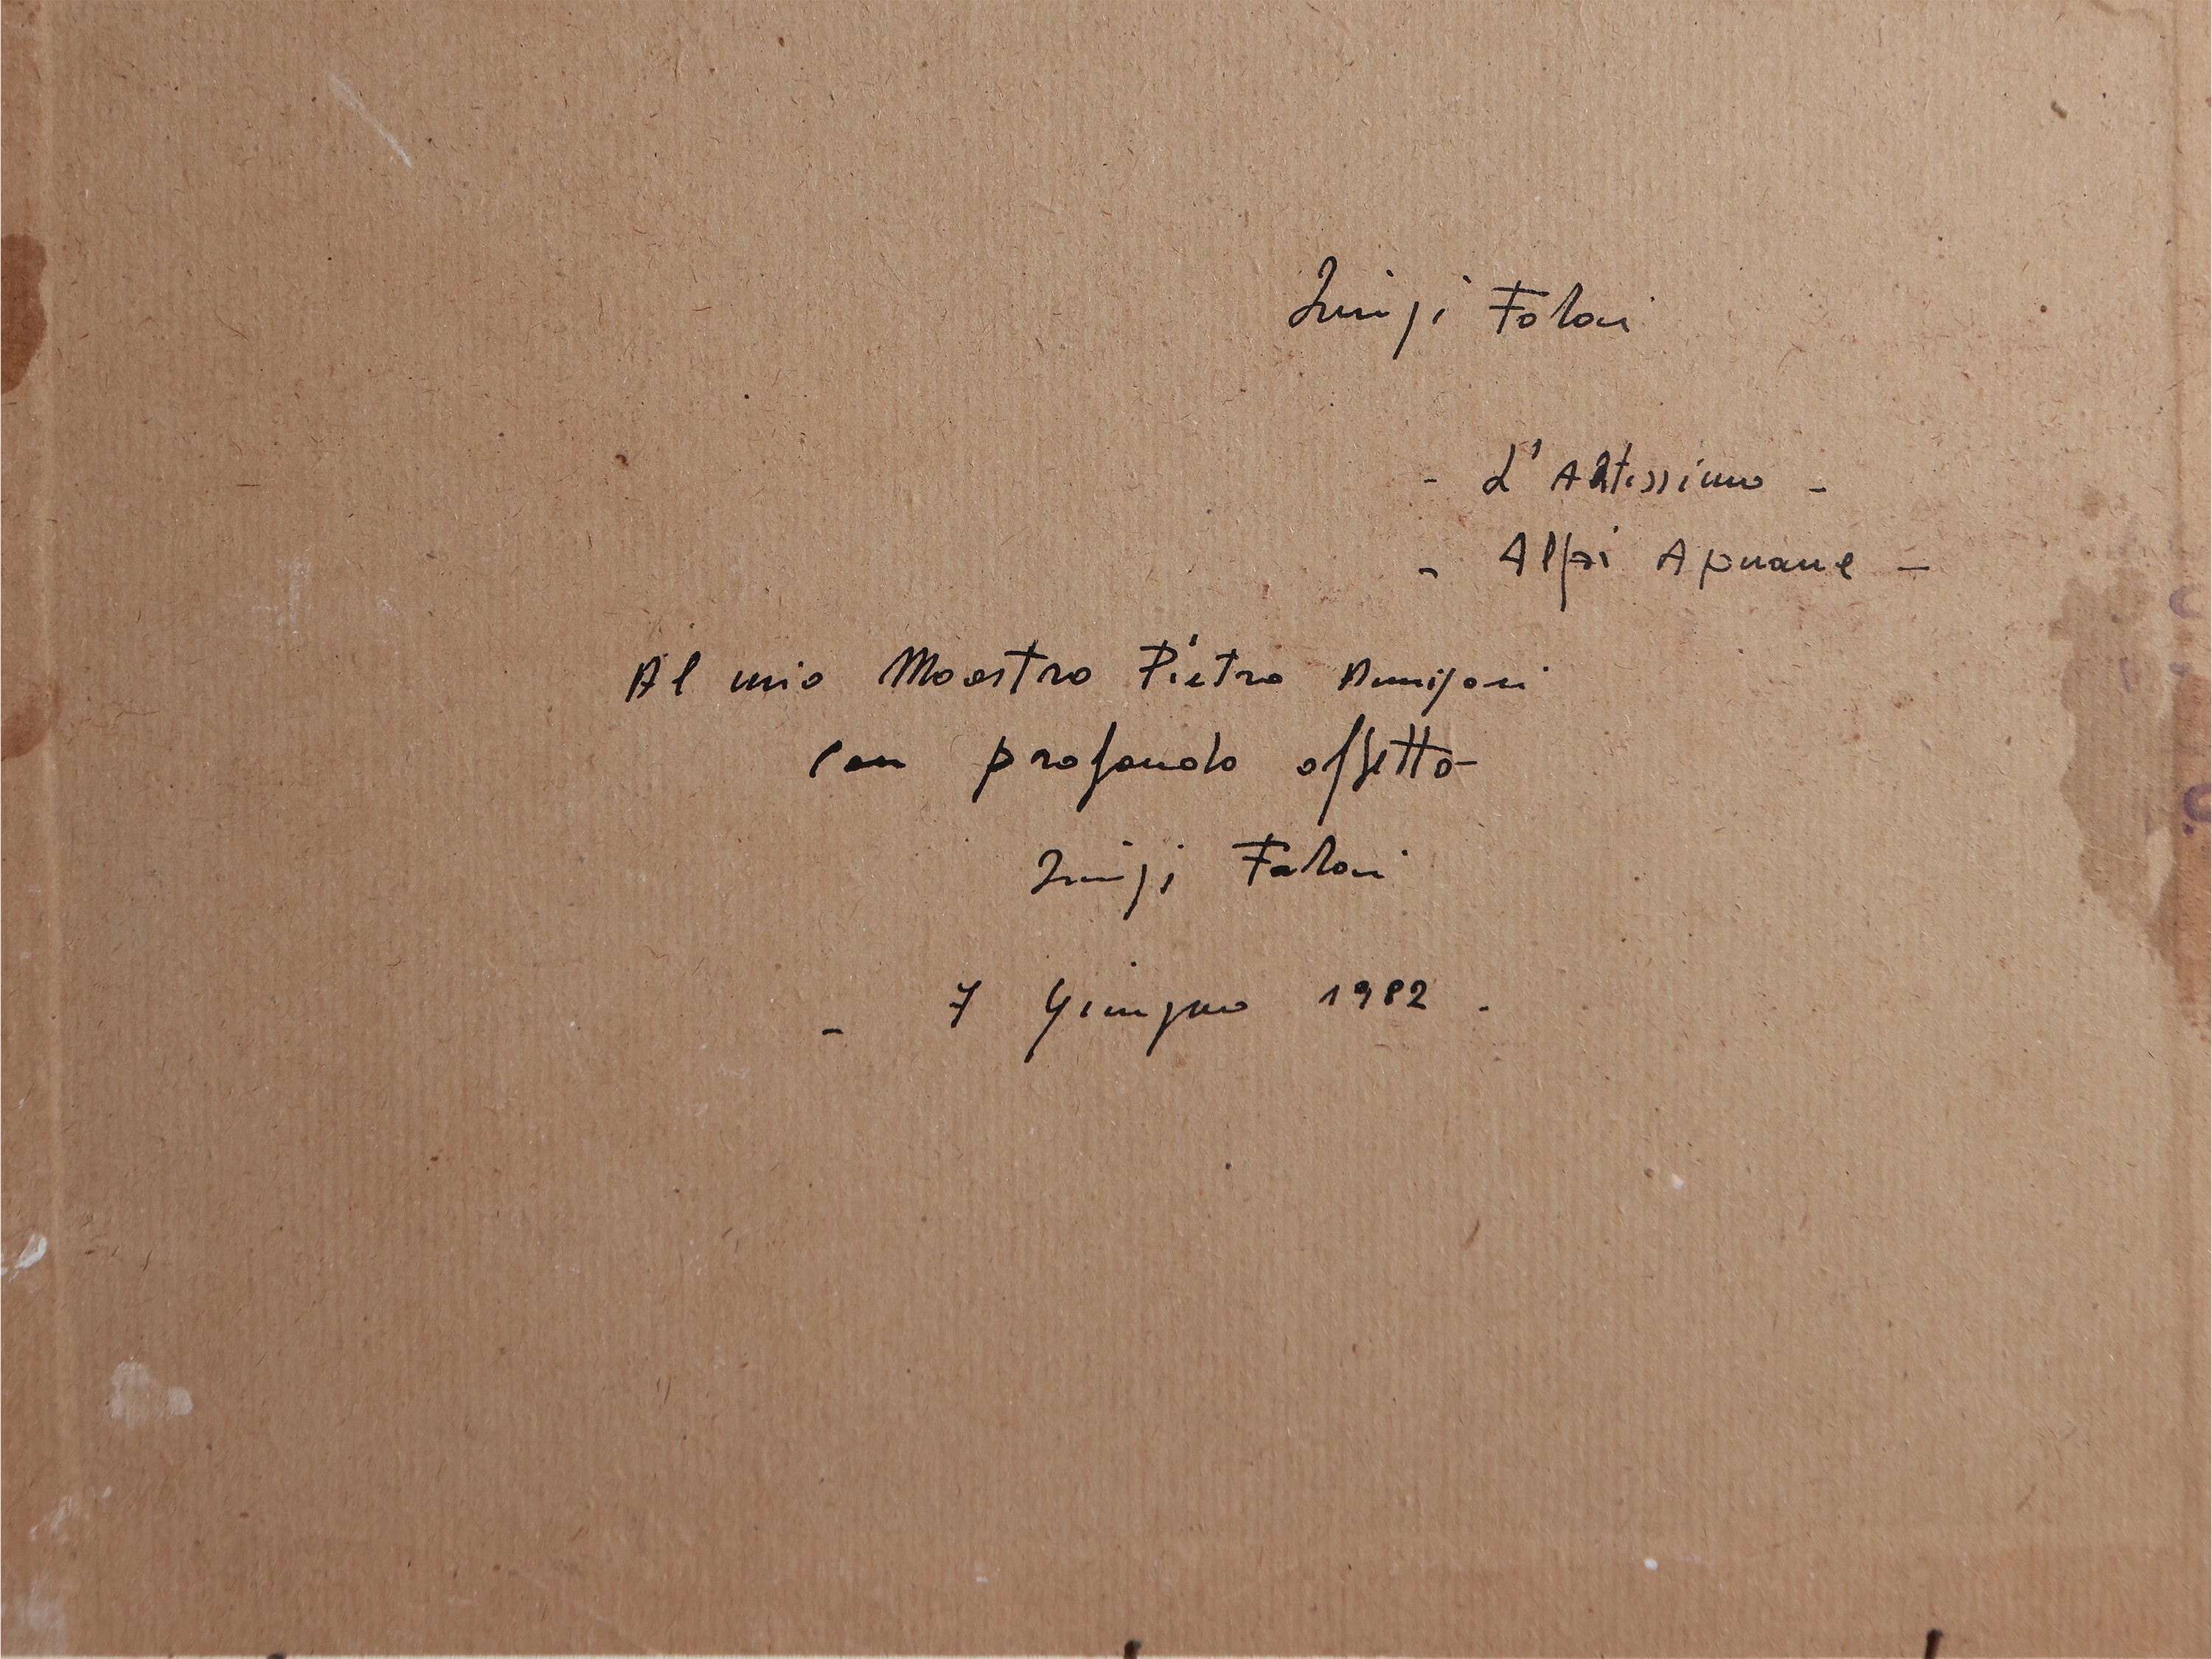 Luigi Faloni
- L'Altissimo -
- Alpi Apuane -
Al mio Maestro Pietro Annigoni
con profondo affetto
Luigi Faloni
- 7 Giugno 1982 .